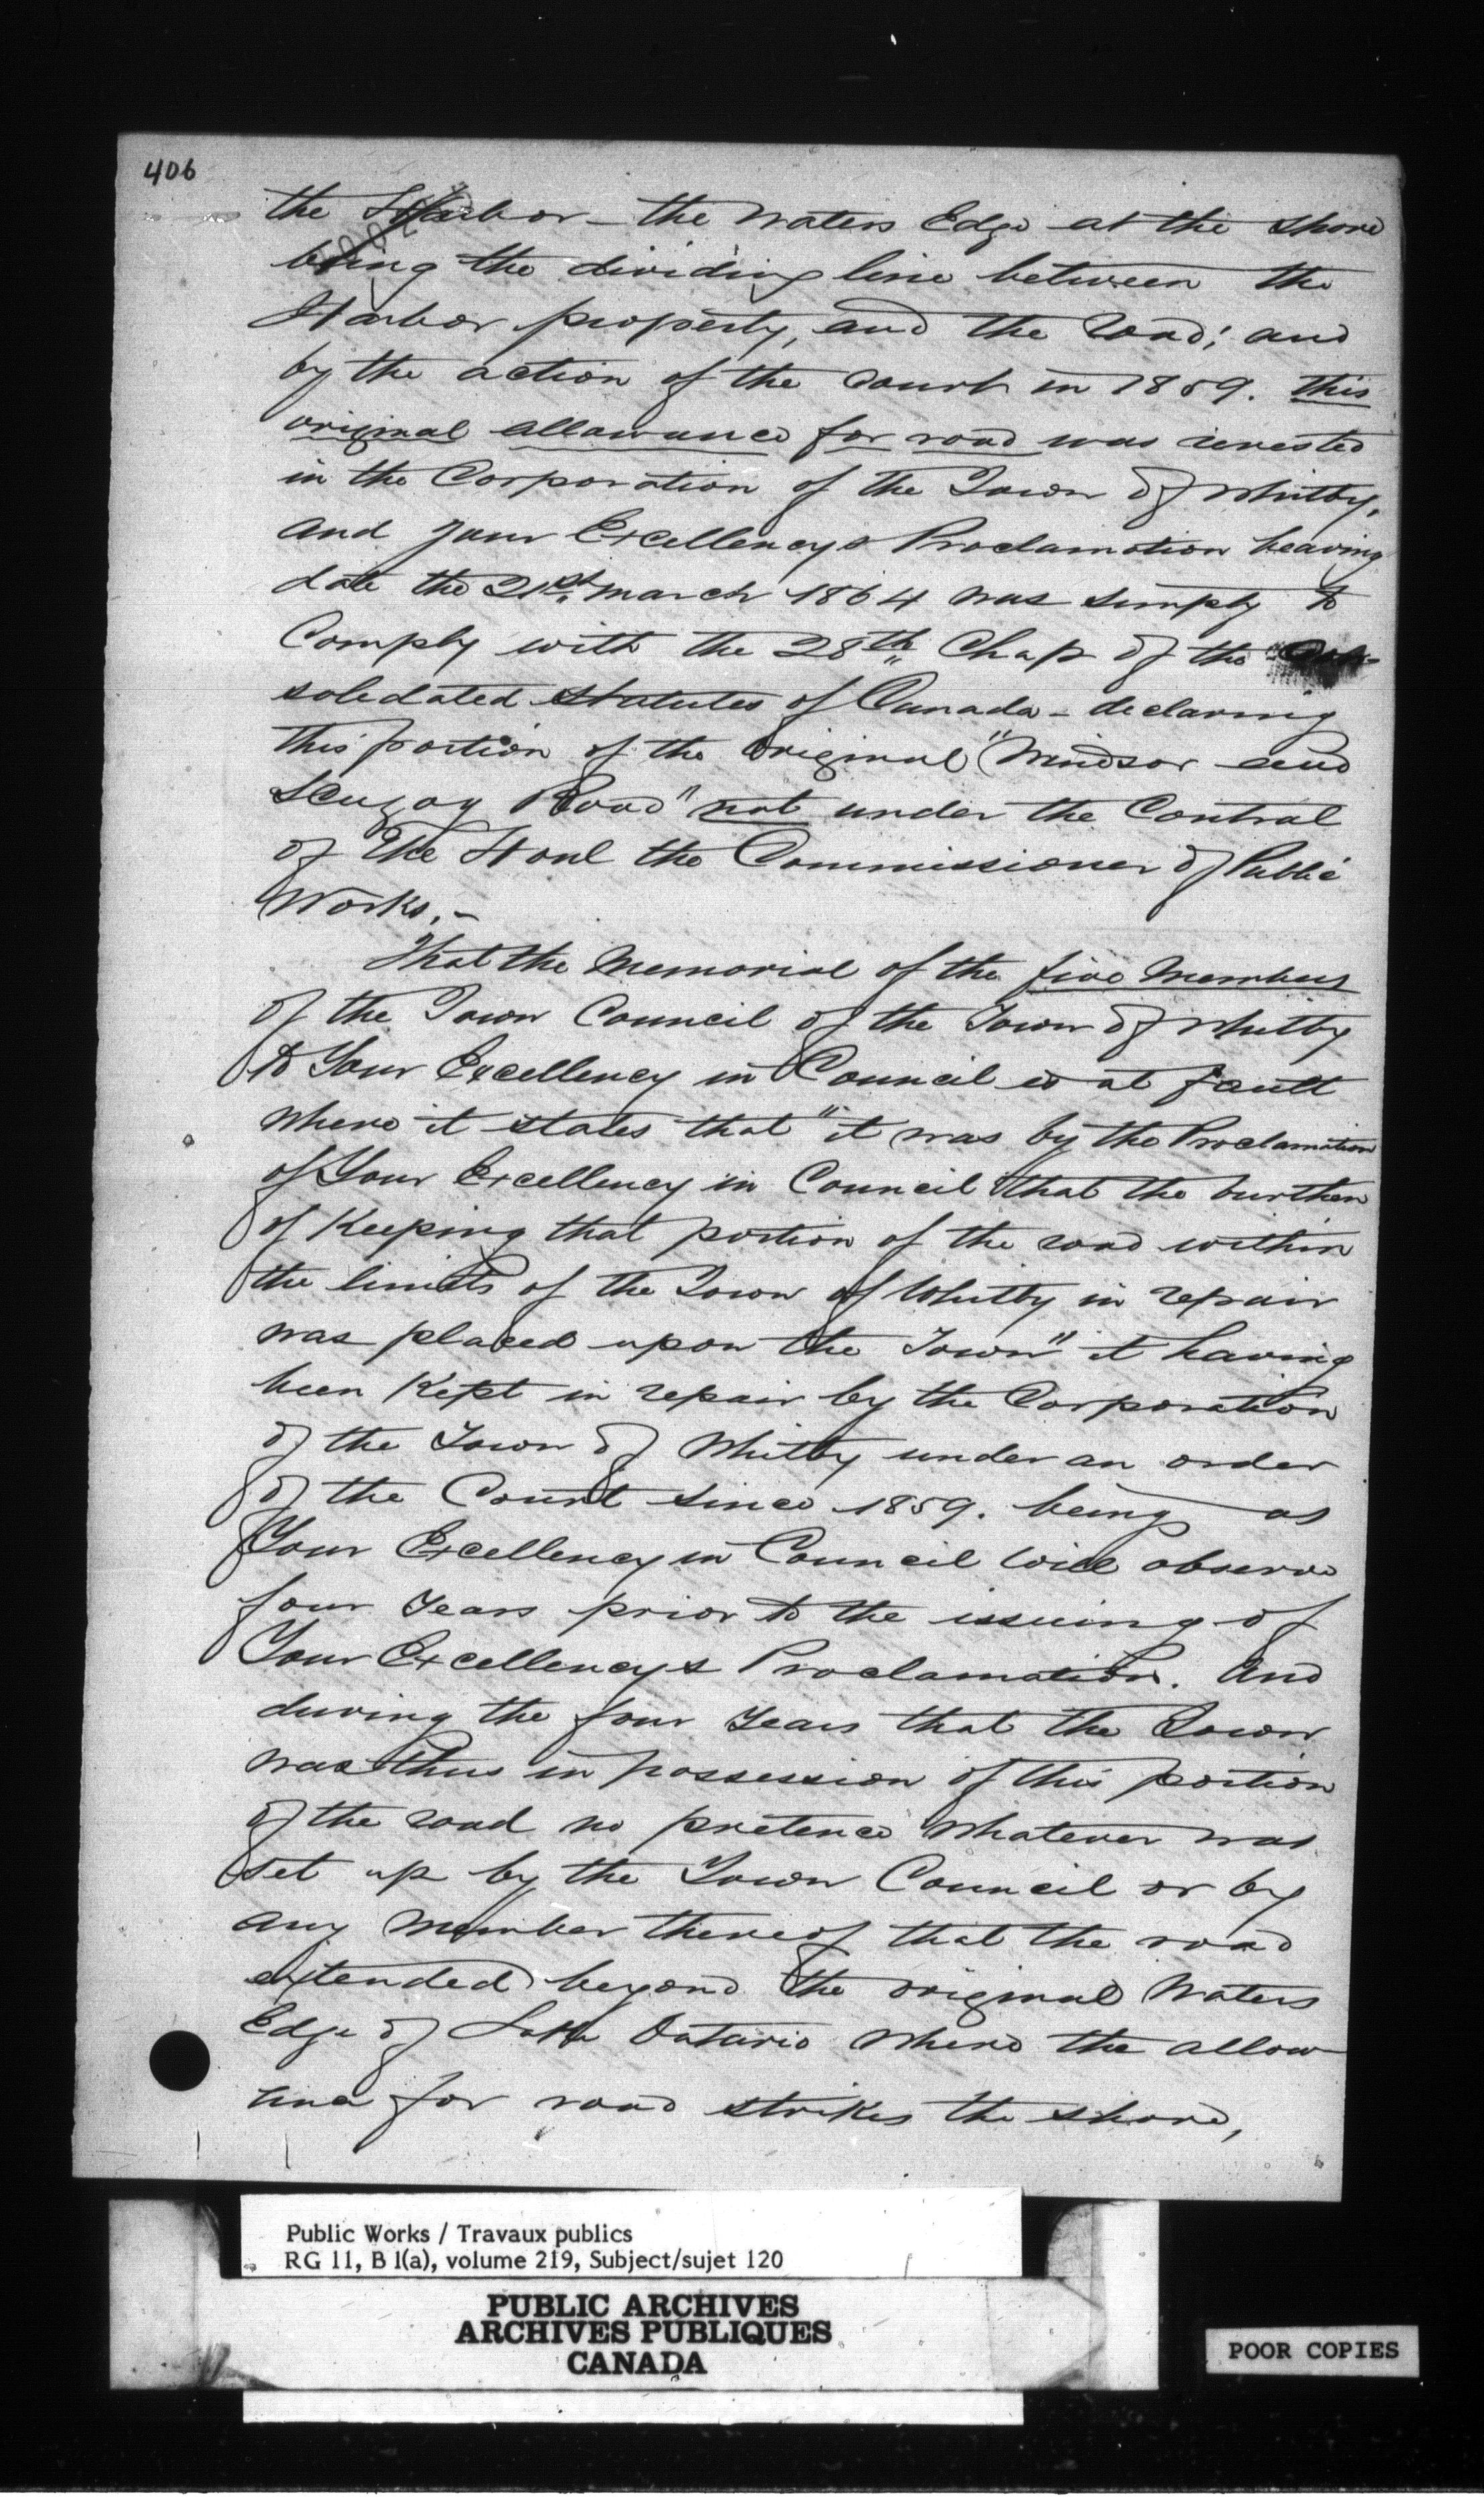 406
the Harbor - the waters Edge at the shore
being the dividing line between the
Harbor property, and the road; and
by the action of the Court in 1859. this
original allowance for road was revested
in the Corporation of the Town of Whitby,
and your Excellencys Proclamation bearing
date the 21st. March 1864 was simply to
Comply with the 28th Chap of the Con-
solidated Statutes of Canada - declaring
this portion of the original "Windsor and
Scugog Road" not under the Control
of the Honl the Commissioner of Public
Works. -
That the Memorial of the five Members
of the Town Council of the Town of Whitby
to Your Excellency in Council is at fault
where it states that "it was by the Proclamation
of Your Excellency in Council that the burthen
of Keeping that portion of the road within
the limits of the Town of Whitby in repair
was placed upon the Town" it having
been Kept in repair by the Corporation
of the Town of Whitby under an order
of the Court since 1859. being as
Your Excellency in Council will observe
four Years prior to the issuing of
Your Excellencys Proclamation. And
during the four Years that the Town
was thus in possession of this portion
of the road no pretence whatever was
set up by the Town Council or by
any Member thereof that the road
extended beyond the original Waters
Edge of Lake Ontario where the allow
ance for road strikes the shore,
Public Works / Travaux publics
RG 11, B 1(a), volume 219, Subject/sujet 120
PUBLIC ARCHIVES
ARCHIVES PUBLIQUES
CANADA
POOR COPIES